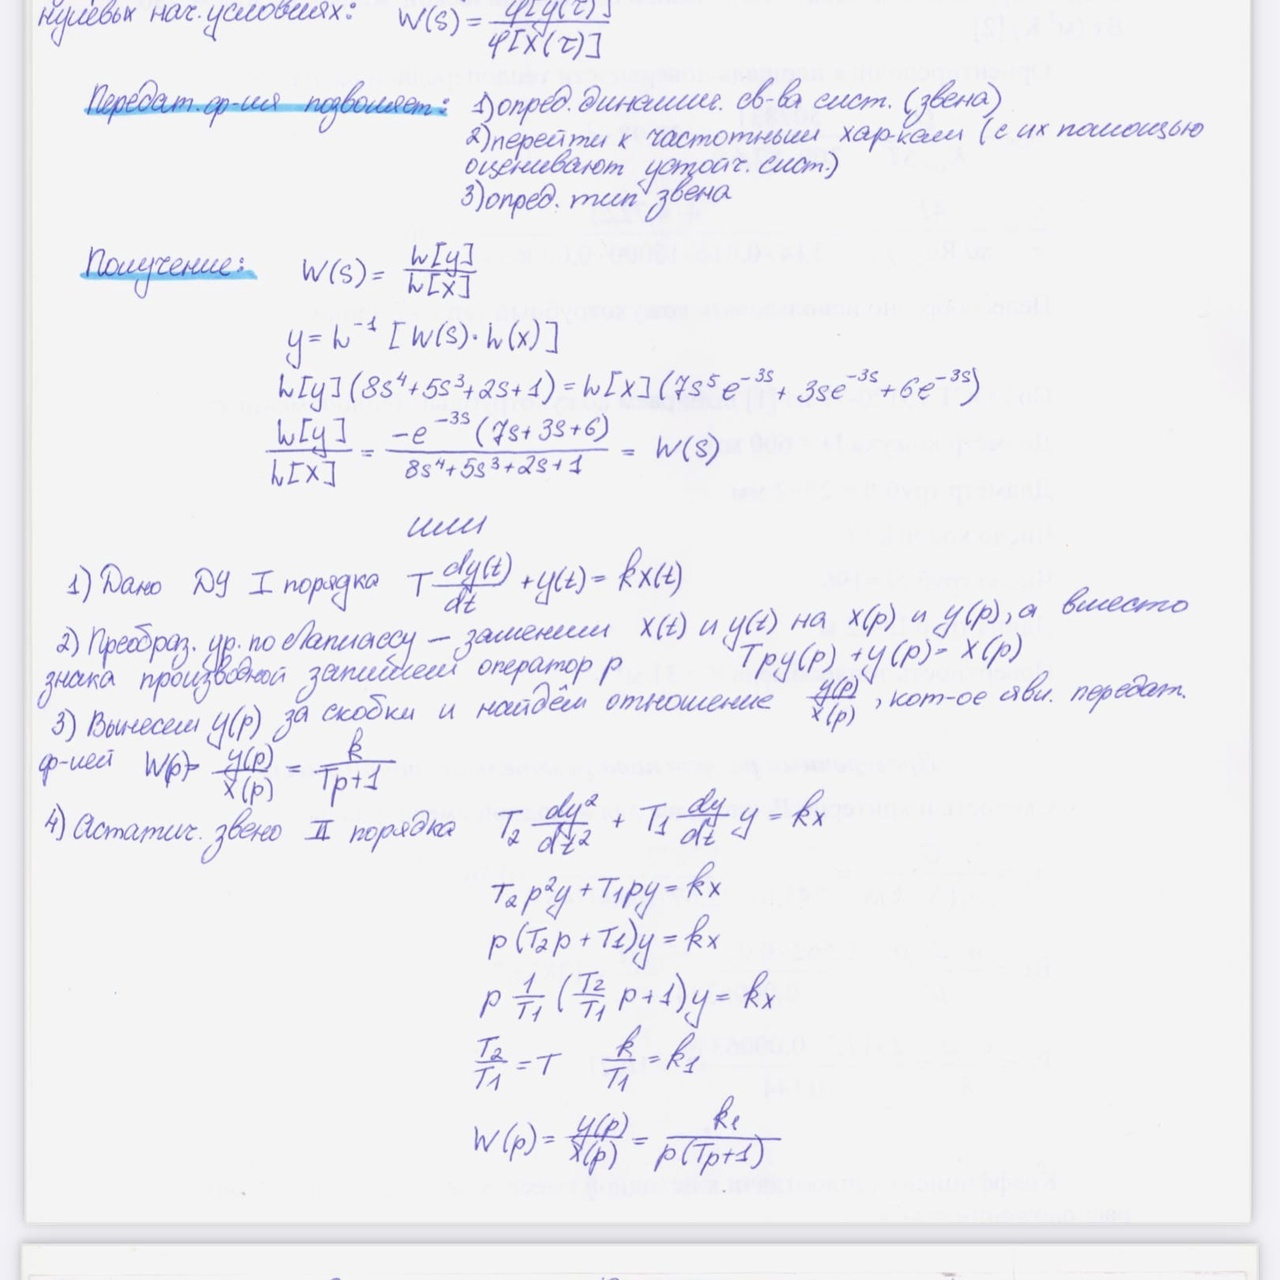 нулевых нач. условиях: W(s) = φ[y(τ)] / φ[x(τ)]
Передат. ф-ия позволяет: 1) опред. динамич. св-ва сист. (звена)
2) перейти к частотным хар-кам (с их помощью
оценивают устойч. сист.)
3) опред. тип звена
Получение: W(s) = L[y] / L[x]
y = L⁻¹ [W(s)·L(x)]
L[y](8s⁴+5s³+2s+1) = L[x](7s⁵e⁻³ˢ + 3se⁻³ˢ + 6e⁻³ˢ)
L[y] / L[x] = -e⁻³ˢ(7s+3s+6) / 8s⁴+5s³+2s+1 = W(s)
или
1) Дано ДУ I порядка T dy(t)/dt + y(t) = kx(t)
2) Преобраз. ур. по Лаплассу — заменим x(t) и y(t) на x(p) и y(p), а вместо
знака производной запишем оператор p Tpy(p) + y(p) = x(p)
3) Вынесем y(p) за скобки и найдём отношение y(p)/x(p), кот-ое явл. передат.
ф-ией W(p) = y(p)/x(p) = k / Tp+1
4) Астатич. звено II порядка T₂ dy²/dt² + T₁ dy/dt y = kx
T₂p²y + T₁py = kx
p(T₂p + T₁)y = kx
p 1/T₁ (T₂/T₁ p+1)y = kx
T₂/T₁ = T k/T₁ = k₁
W(p) = y(p)/x(p) = k₁ / p(Tp+1)